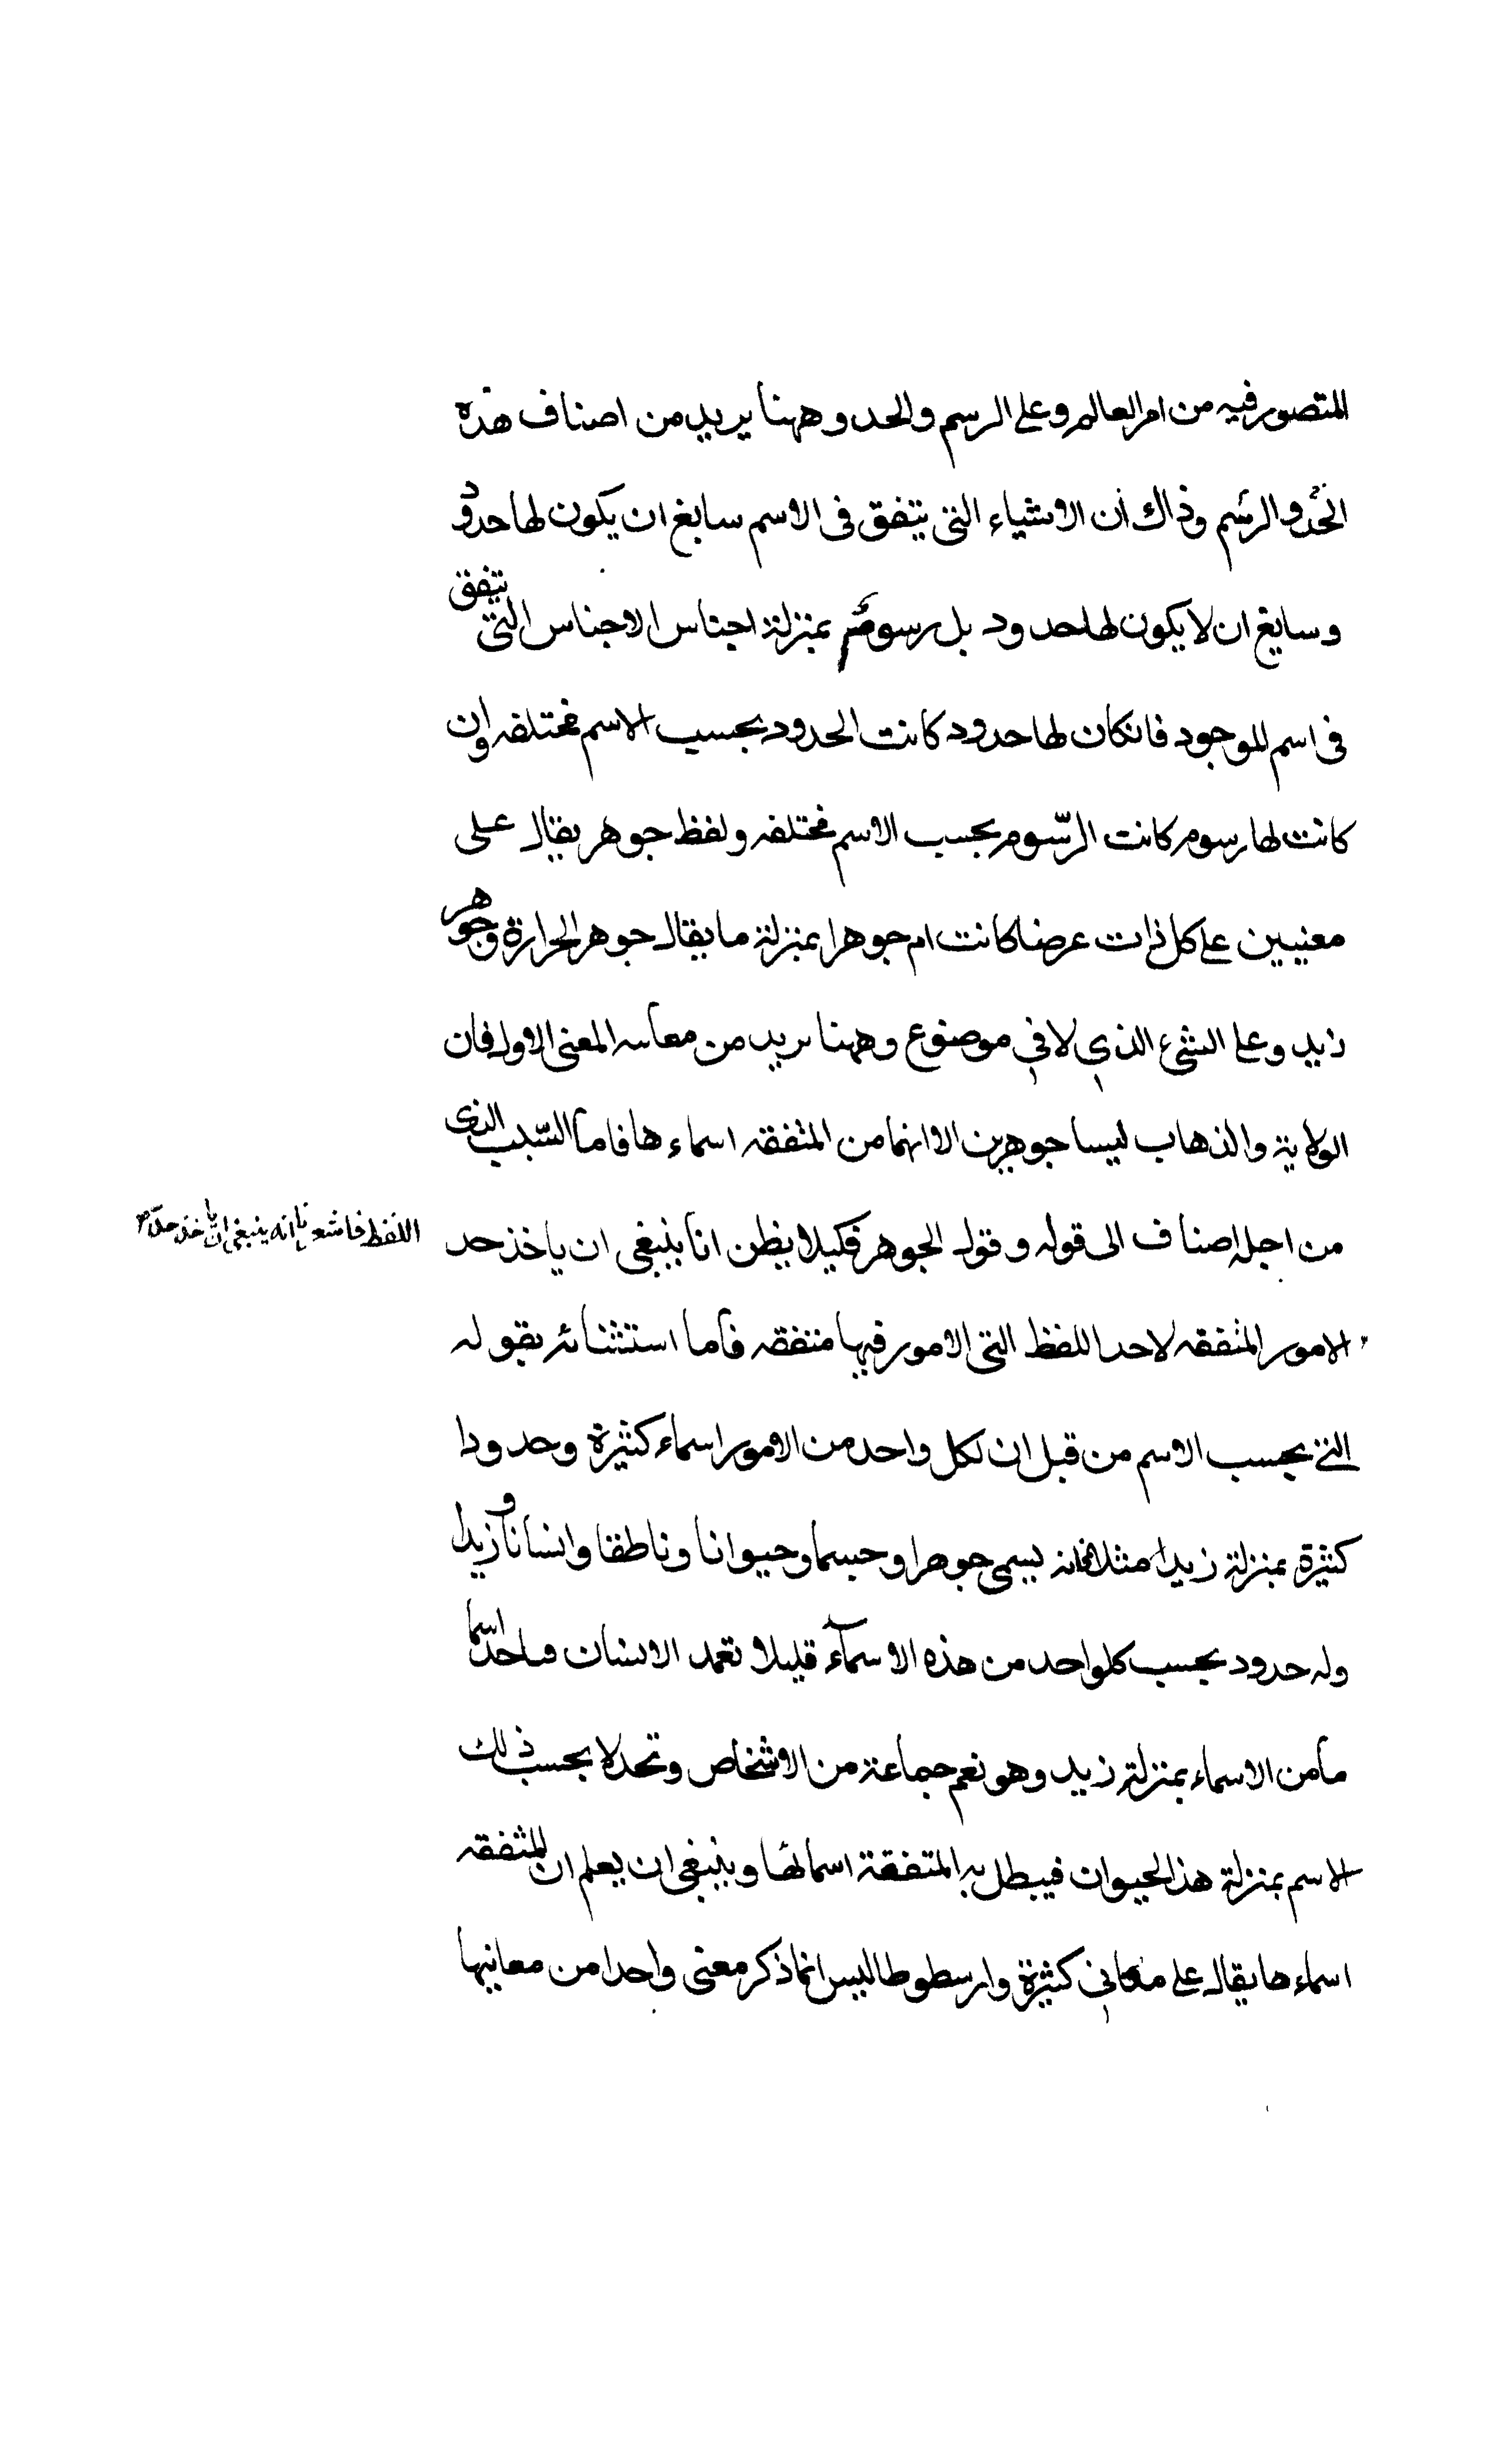 المتصور فيه من امر العالم وعلى الرسم والحد وههنا يريد من اصناف هذه
الحد والرسم وذاك ان الاشياء التى يتفق فى الاسم سايغ ان يكون لها حدود
وسايغ ان لا يكون لها حدود بل رسوم بمنزلة اجناس الاجناس التى يتفق
فى اسم الموجود فانكان لها حدود كانت الحدود بحسب الاسم مختلفه وان
كانت لها رسوم كانت الرسّوم بحسب الاسم مختلفه ولفظ جوهر يقال على
معنيين على كل ذات عرضا كانت ام جوهرا بمنزلة ما يقال جوهر الحرارة وجوهر
زيد وعلى الشىء الذي لا في موضوع وههنا يريد من معانيه المعنى الاول فان
الولاية والذهاب ليسا جوهرين الا انهما من المتفقه اسماءها فاما السّبب الذى
من اجله اضاف الى قوله وقول الجوهر فكيلا يظن انا ينبغى ان ياخذ حد
اللفظ فاشعرنا انه ينبغى ان ياخذ حدّ
الامور المتفقه لا حد اللفظ التى الامور فيها متفقه فاما استثنائه بقوله
التى بحسب الاسم من قبل ان لكل واحد من الامور اسماء كثيرة وحدودا
كثيرة بمنزلة زيدا مثلا فانه يسمى جوهرا وجسما وحيوانا وناطقا وانسانا وزيدا
وله حدود بحسب كلواحد من هذه الاسمآء قليلا تعمد الانسان اسما
ما من الاسماء بمنزلة زيد وهو نعم جماعة من الاشخاص وتحده لا بحسب ذلك
الاسم بمنزلة هذا الحيوان فيبطل به المتفقة اسمائها وينبغى ان يعلم ان المتفقه
اسماءها يقال على معاني كثيرة وارسطوطاليس انما ذكر معنى واحدا من معانيها